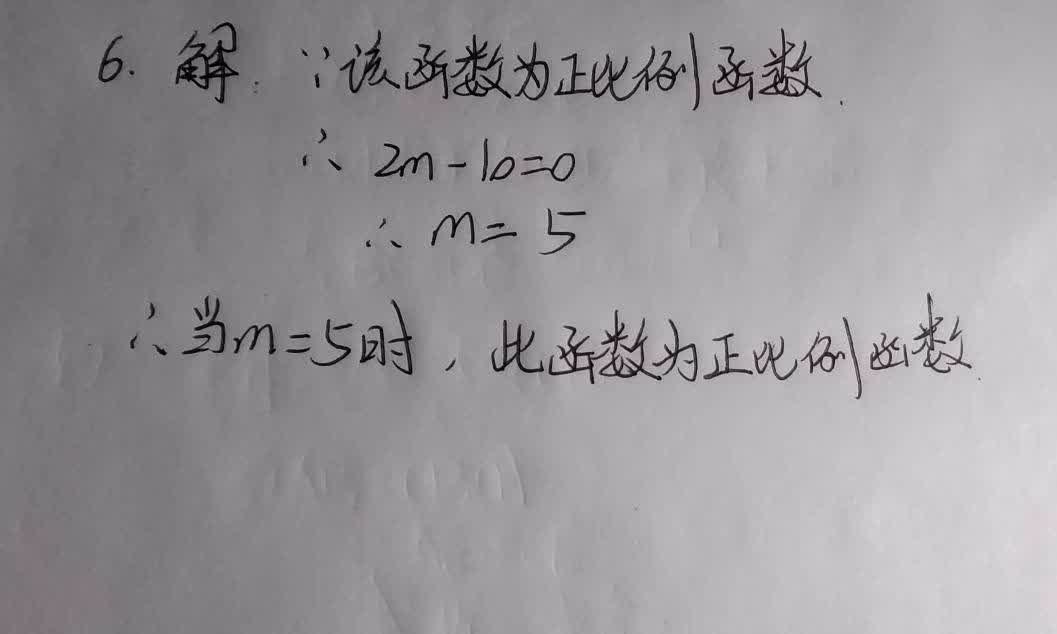 6. 解: ∵该函数为正比例函数.
∴ 2m-10=0
∴ m=5
∴当m=5时,此函数为正比例函数.